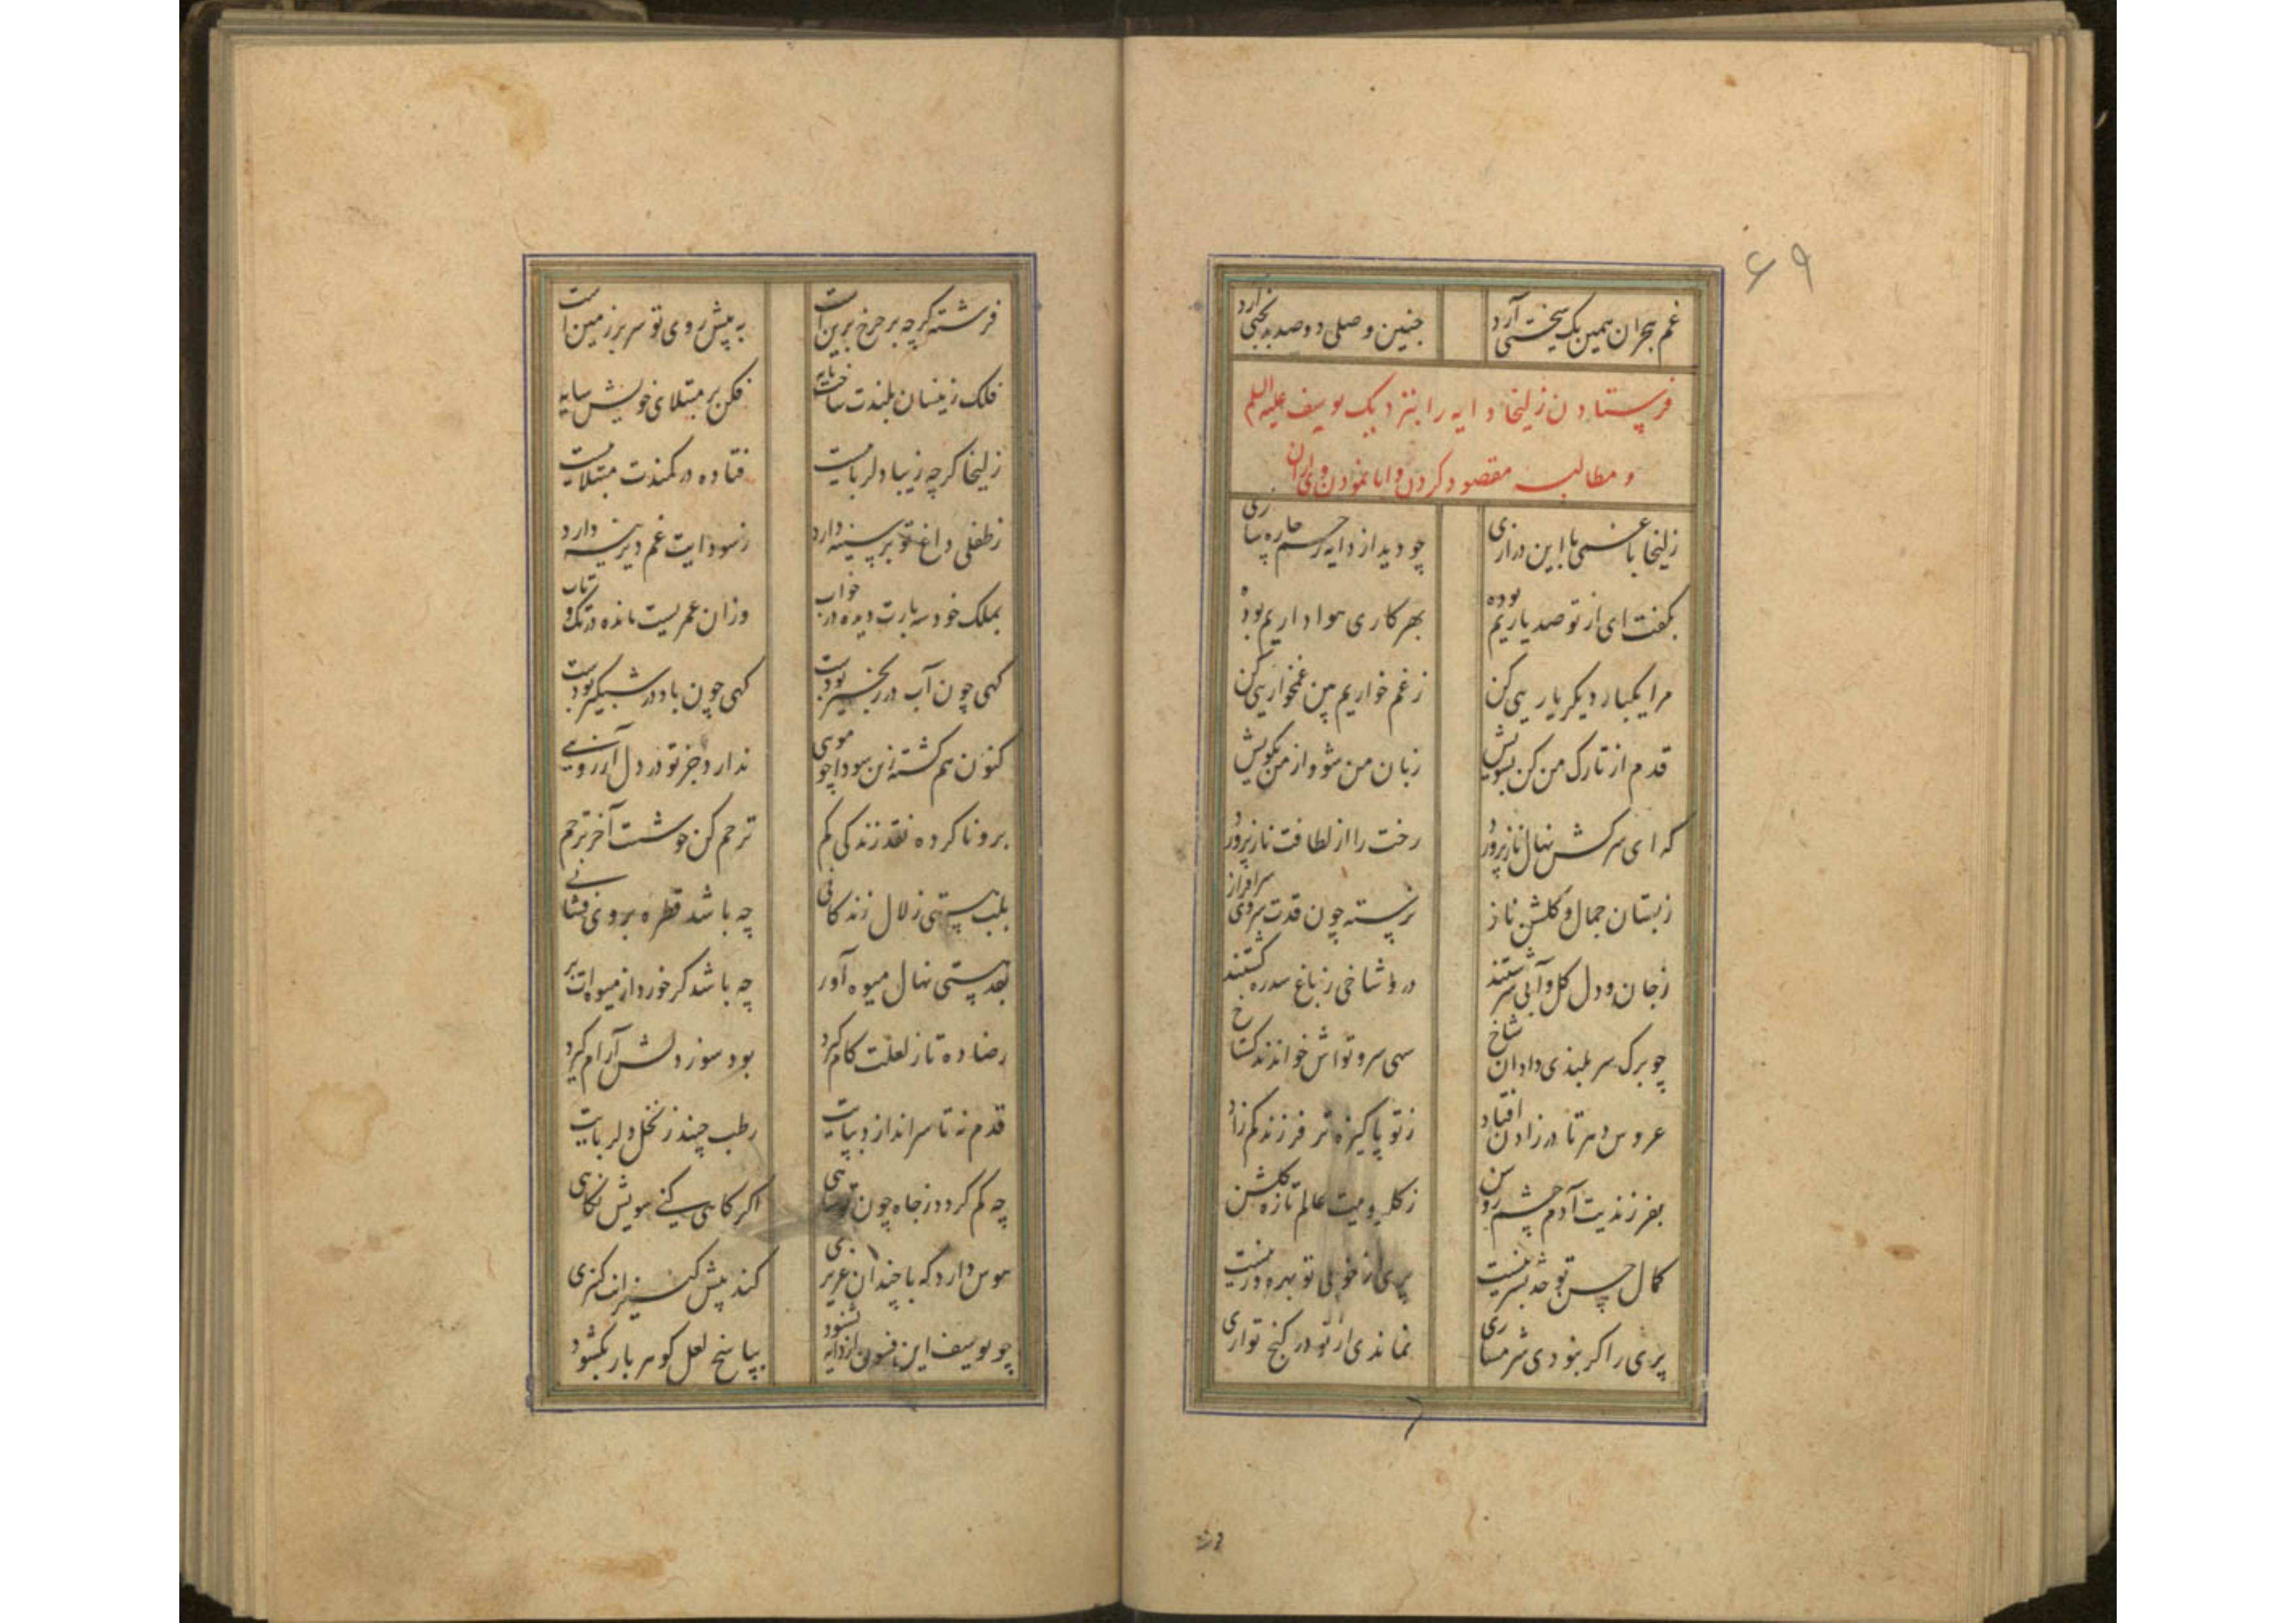 ۶۹
غم هجران همین یک سختی آرد چنین وصلی دو صد بدبختی آرد
فرستادن زلیخا دایه را بنزدیک یوسف علیه السلم
و مطالبه مقصود کردن و ابا نمودن وی ازان
زلیخا با غمی با این درازی چو دید از دایه رسم چاره سازی
بگفت ای از تو صد یاریم بوده بهر کاری هواداریم بوده
مرا یکبار دیگر یاریی کن زغم خواریم بین غمخواریی کن
قدم از تارک من کن بسویش زبان من شو و از من بگویش
که ای سرکش نهال نازپرور رخت را از لطافت نازپرور
زبستان جمال و گلشن ناز نرسته چون قدت سروی سرافراز
زجان و دل گل و آبی سرشتند درو شاخی زباغ سدره کشتند
چو برگ سر بلندی داد ان شاخ سهی سرو تواش خواندند گستاخ
عروس دهر تا در زادن افتاد زتو پاکیزه تر فرزند کم زاد
بفرزندیت آدم چشم روشن زگلرویت عالم تازه گلشن
کمال حسن تو حد بشر نیست پری از خوبی تو بهره ور نیست
پری را گر نبودی شرمساری نماندی از تو در کنج تواری
فرشته
فرشته گرچه بر چرخ برین است به پیش روی تو سر بر زمین است
فلک زینسان بلندت ساخت پایه فکن بر مبتلای خویش سایه
زلیخا گرچه زیبا دلربایست فتاده در کمندت مبتلایست
زطفلی داغ تو بر سینه دارد زسودایت غم دیرینه دارد
بملک خود سه بارت دیده در خواب وزان عمریست مانده در تک و تاب
گهی چون آب در زنجیر بودست گهی چون باد در شبگیر بودست
کنون هم گشته زین سودا چو مویی ندارد جز تو در دل آرزویی
برو نا کرده نقد زندگی کم ترحم کن خوشست آخر ترحم
بلب هستی زلال زندگانی چه باشد قطره بر وی فشانی
بقد هستی نهال میوه آور چه باشد گر خورد از میوه ات بر
رضا ده تا زلعلت کام گیرد بود سوز دلش آرام گیرد
قدم نه تا سر اندازد بپایت رطب چیند ز نخل دلربایت
چه کم گردد زجاه چون تو شاهی اگر گاهی کنی سویش نگاهی
هوس دارد که با چندان عزیزی کند پیش کنیزانت کنیزی
چو یوسف این فسون از دایه بشنود بپاسخ لعل گوهر بار بگشود